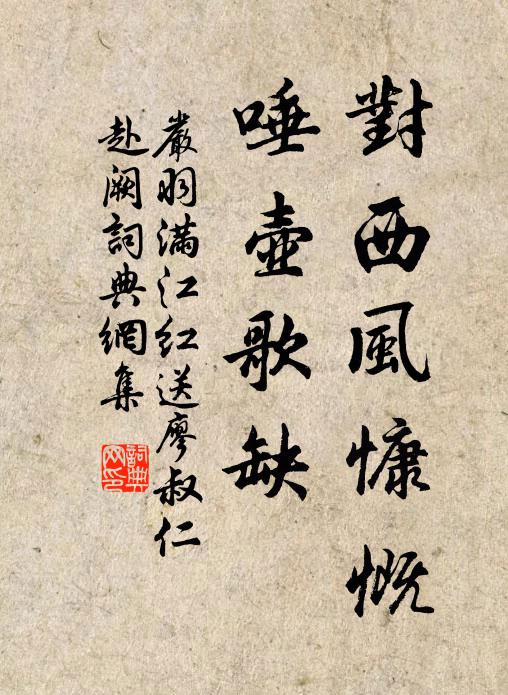 對西風慷慨
唾壺歌缺
嚴羽滿江紅送廖叔仁
赴闕詞典網集
詞典网印